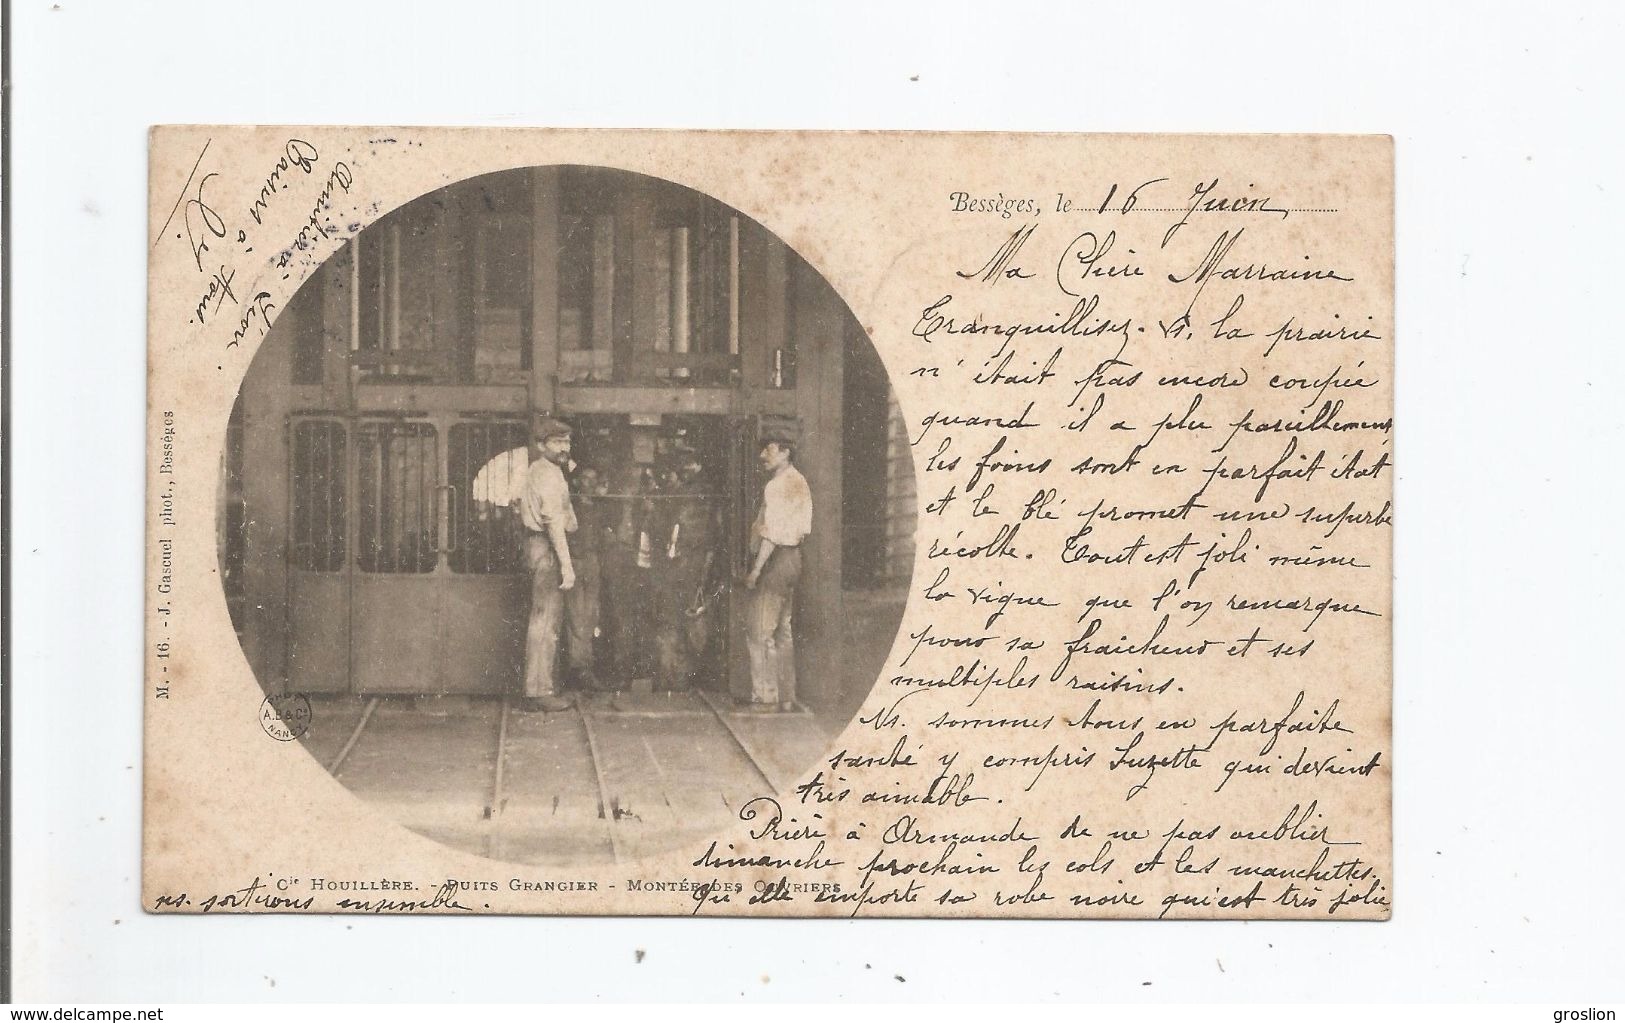 Bessèges, le 16 Juin
Ma Chère Marraine
Tranquillisez-vs, la prairie
n'était pas encore coupée
quand il a plu pareillement
les foins sont en parfait état
et le blé promet une superbe
récolte. Tout est joli même
la vigne que l'on remarque
pour sa fraicheur et ses
multiples raisins.
Ns. sommes tous en parfaite
santé y compris Suzette qui devient
très aimable.
Prière à Armande de ne pas oublier
dimanche prochain les cols et les manchettes.
Qu'elle emporte sa robe noire qui est très jolie
ns. sortirons ensemble.
Amitiés à
Baisers à tous.
M. - 16. - J. Gascuel phot., Bessèges
PHOT
A.B & Cie
NANCY
Cie HOUILLÈRE. - PUITS GRANGIER - MONTÉE DES OUVRIERS
www.delcampe.net
groslion